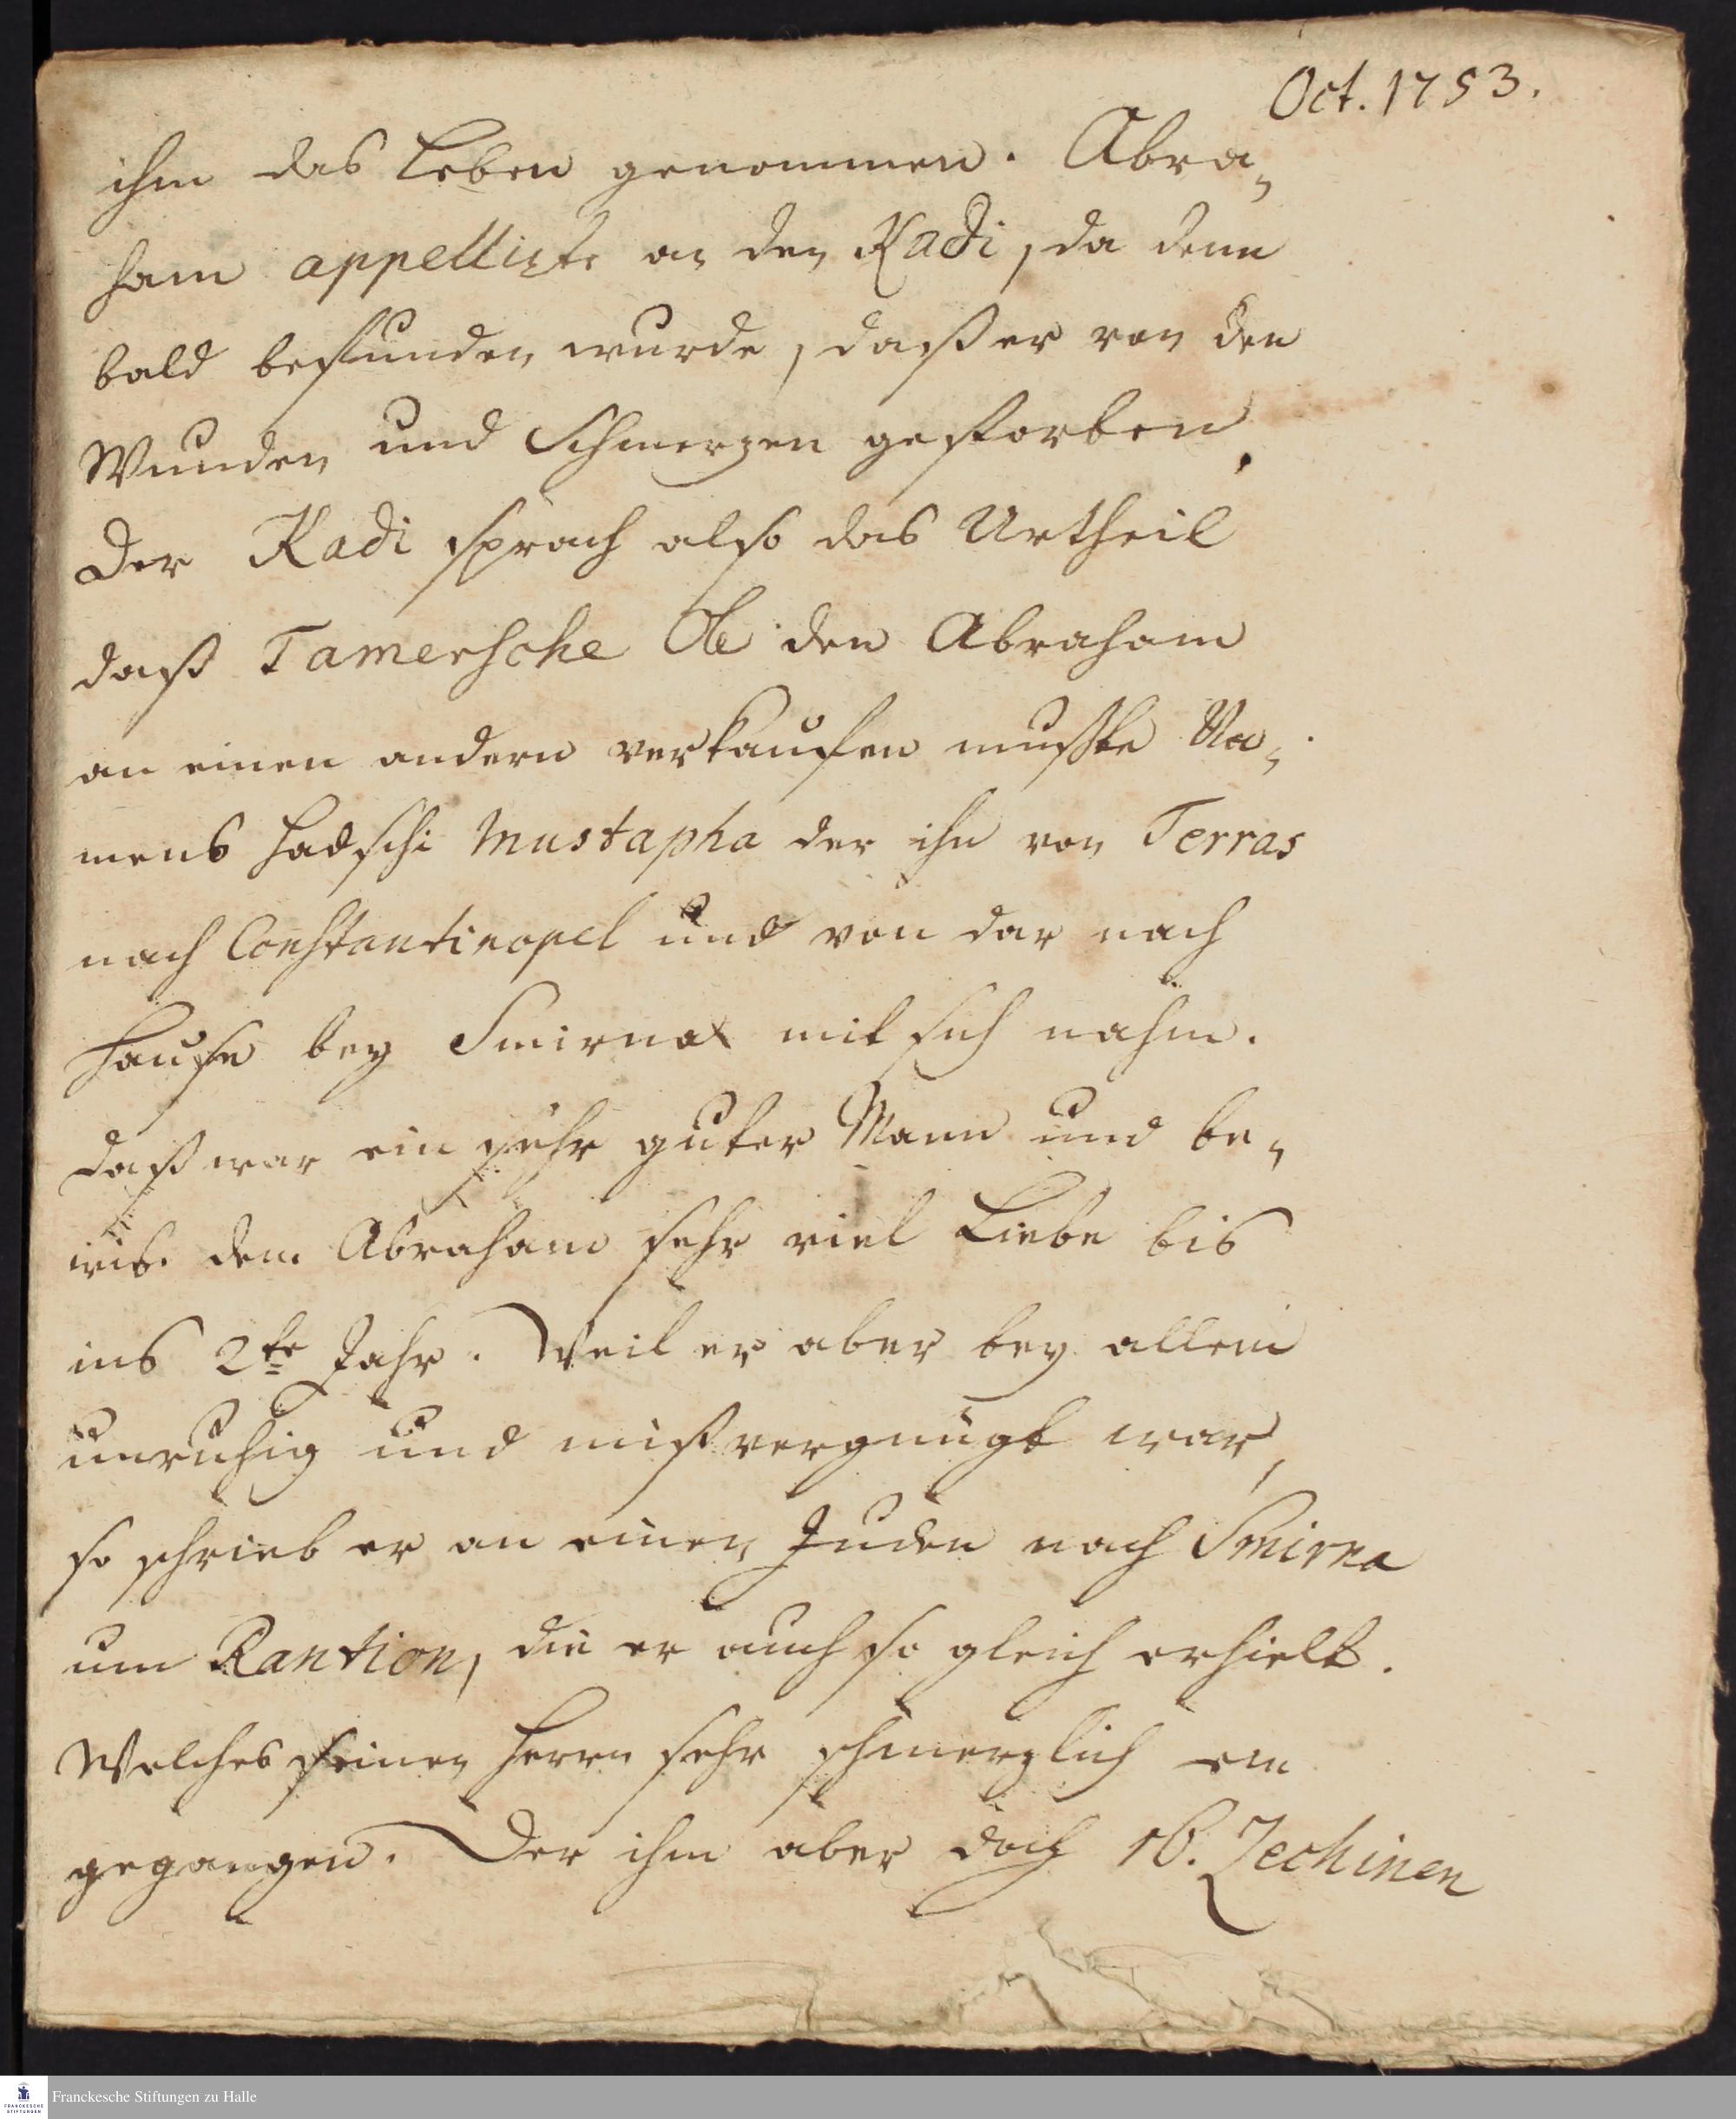 Oct. 1753.
ihm das Leben genommen. Abra,
ham appellirte an den Kadi, da denn
bald befunden wurde, daß er von den
Wunden und Schmerzen gestorben.
Der Kadi sprach also das Urtheil
daß Tamersche Ole den Abraham
an einen andern verkaufen mußte Na,
mens Hadschi Mustapha der ihn von Terras
nach Constantinopel und von dar nach
Hause bey Smirna mit sich nahm.
Daß war ein sehr guter Mann und be,
wis dem Abraham sehr viel Liebe bis
ins 2te Jahr. Weil er aber bey allem
unruhig und mißvergnügt war,
so schrieb er an einen Juden nach Smirna
um Rantion, die er auch so gleich erhielt.
Welches seinen Herrn sehr schmerzlich ein
gegangen. Der ihm aber doch 16. Zechinen
FRANCKESCHE STIFTUNGEN
Franckesche Stiftungen zu Halle